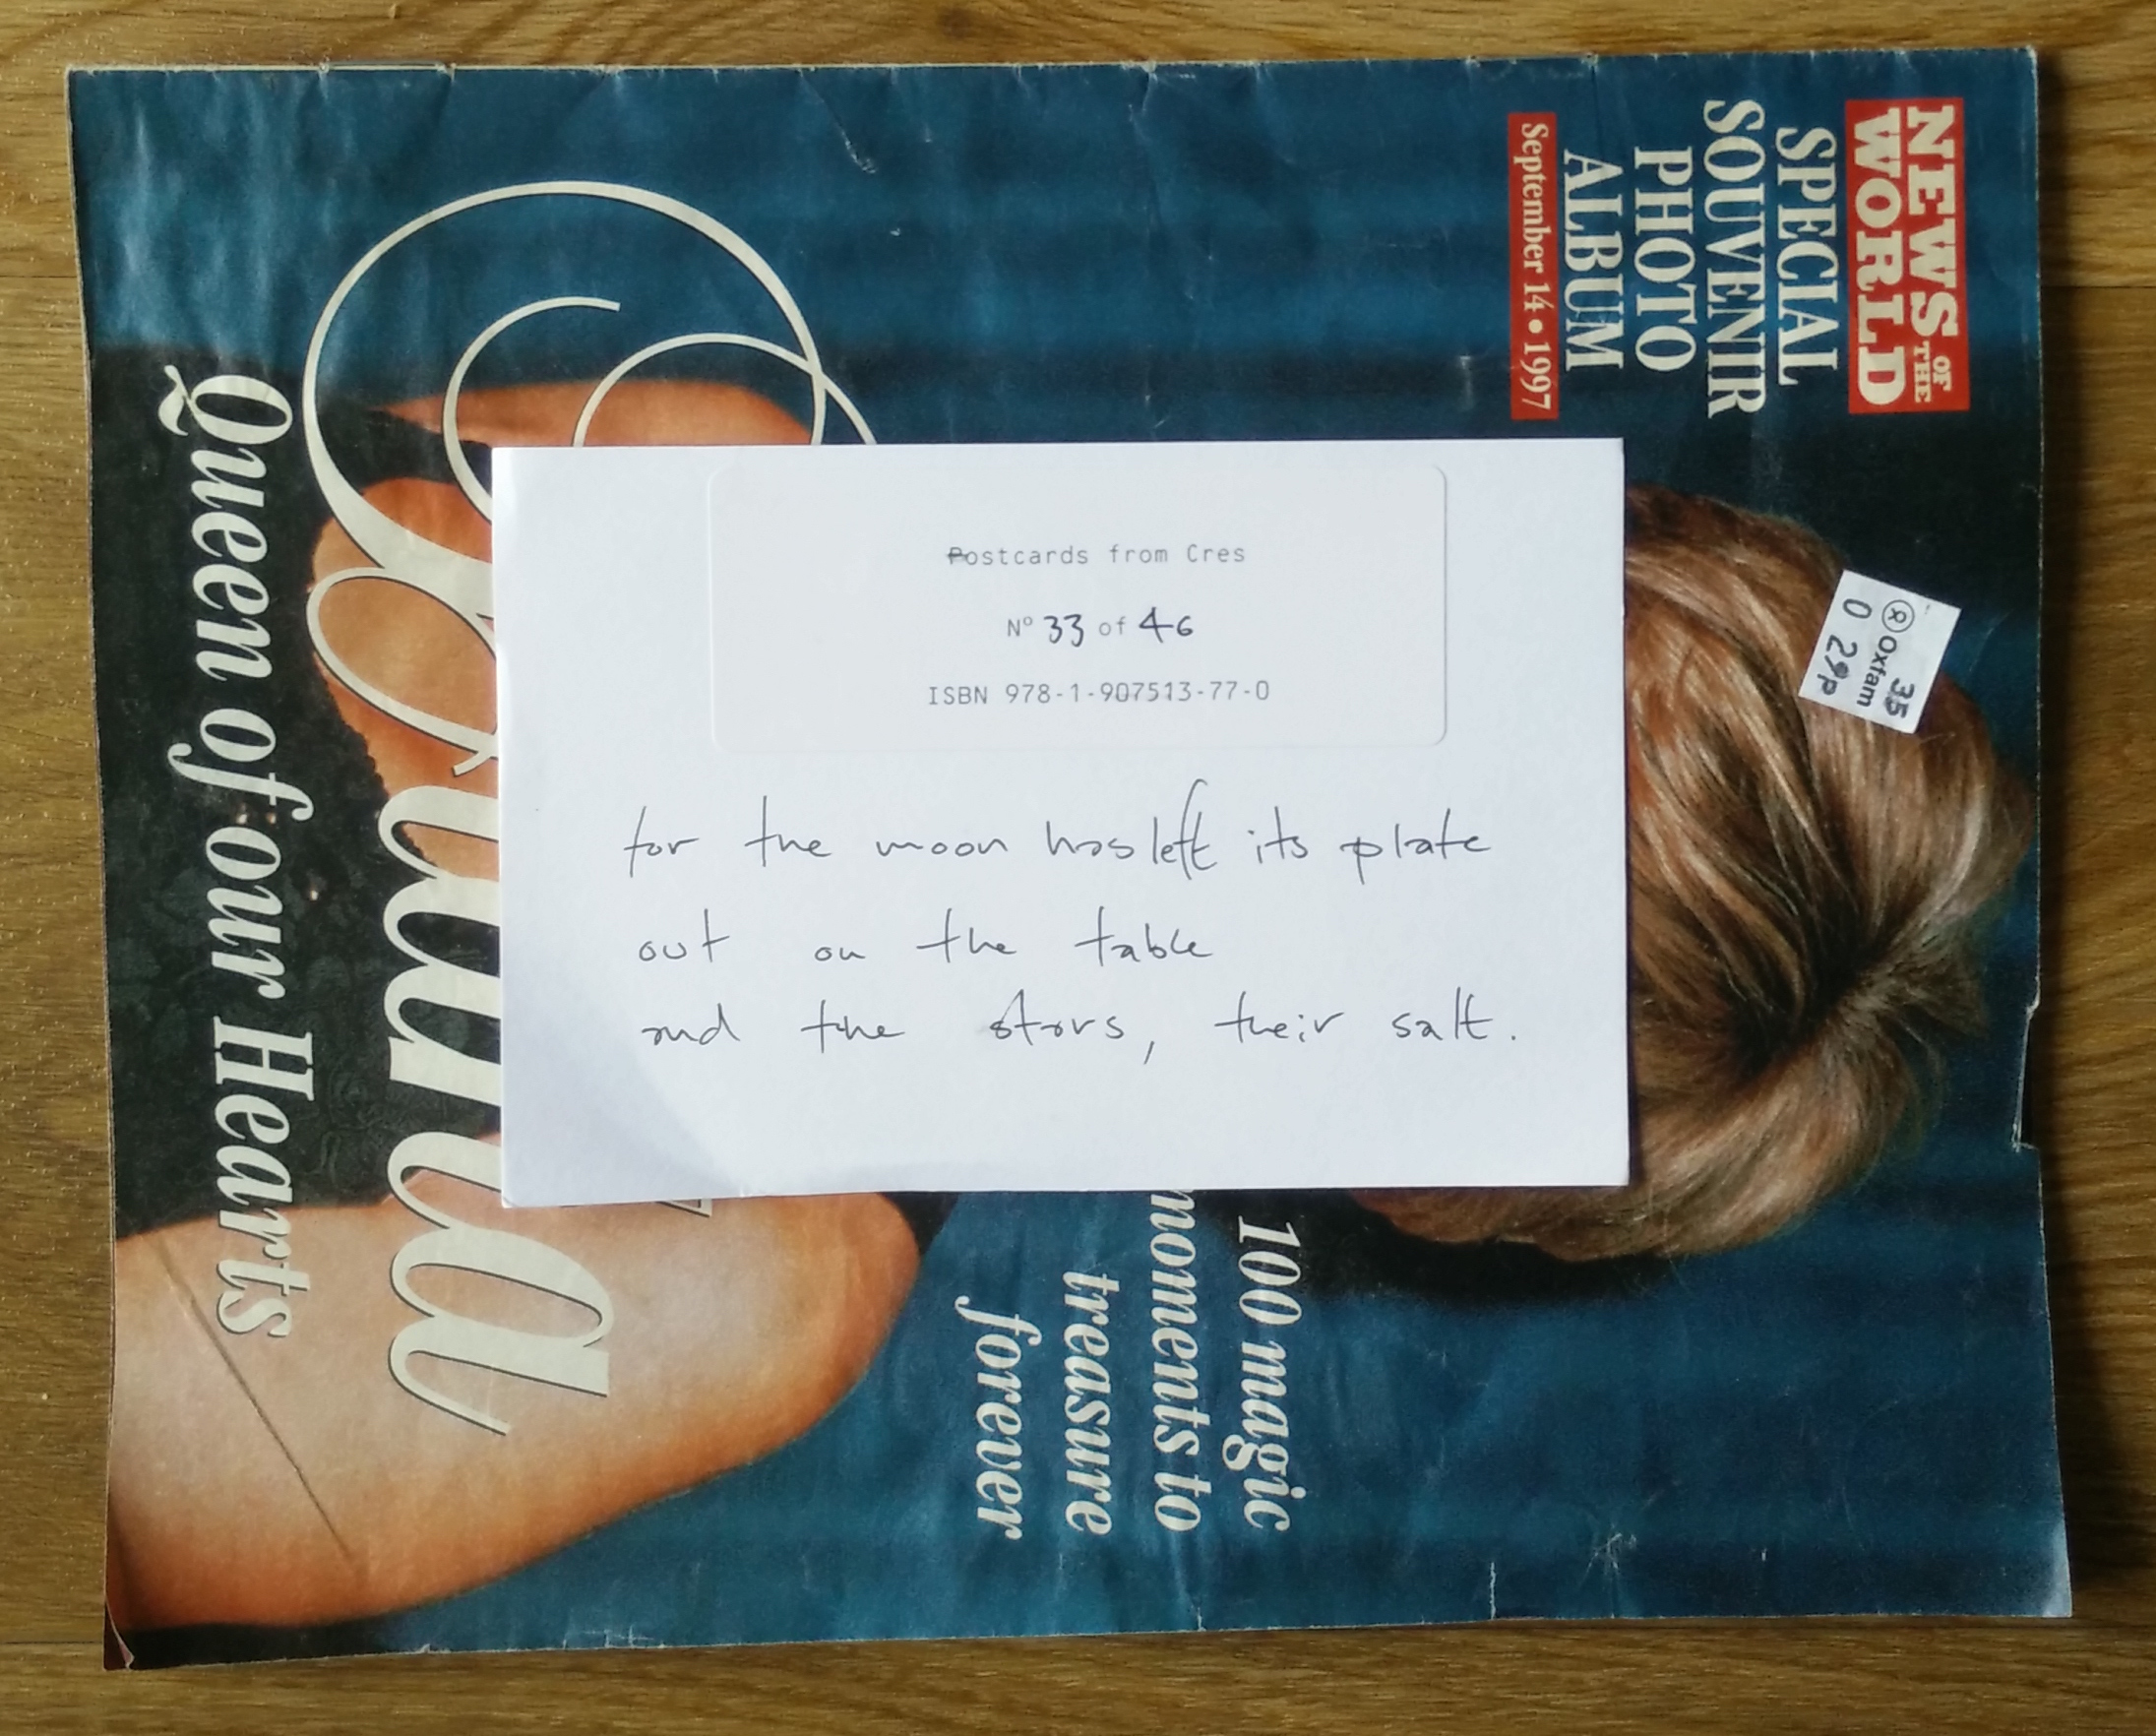 NEWS OF THE
WORLD
SPECIAL
SOUVENIR
PHOTO
ALBUM
September 14 • 1997
35
Oxfam
0 29p
Postcards from Cres
Nº 33 of 46
ISBN 978-1-907513-77-0
for the moon has left its plate
out on the table
and the stars, their salt.
100 magic
moments to
treasure
forever
Diana
Queen of our Hearts